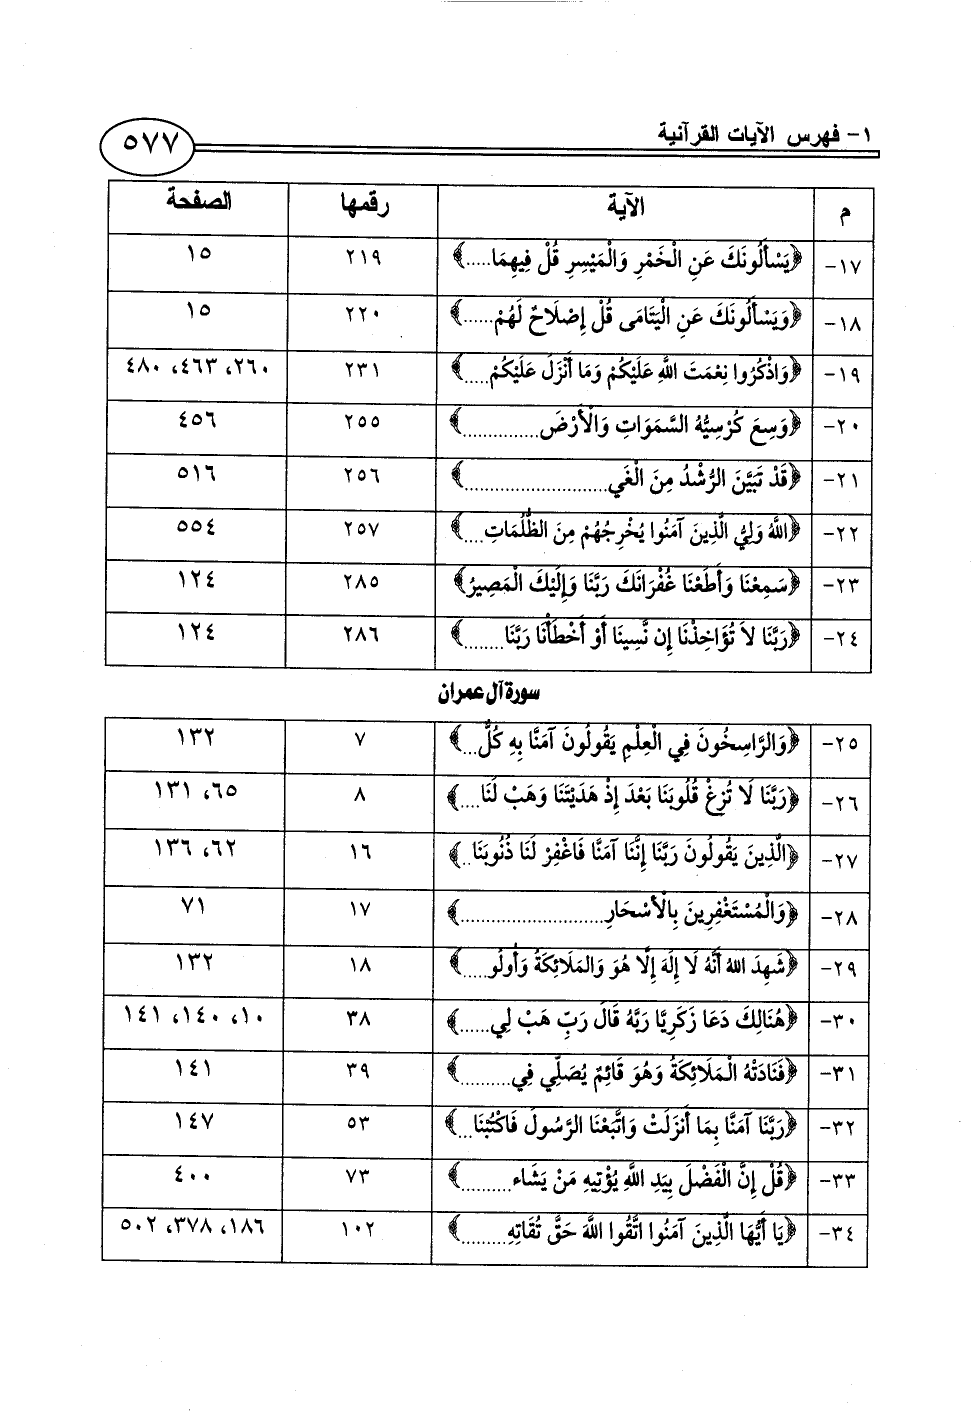 ١- فهرس الآيات القرآنية ٥٧٧
م الآية رقمها الصفحة
١٧- ﴿يَسْأَلُونَكَ عَنِ الْخَمْرِ وَالْمَيْسِرِ قُلْ فِيهِمَا.....﴾ ٢١٩ ١٥
١٨- ﴿وَيَسْأَلُونَكَ عَنِ الْيَتَامَى قُلْ إِصْلَاحٌ لَهُمْ......﴾ ٢٢٠ ١٥
١٩- ﴿وَاذْكُرُوا نِعْمَتَ اللَّهِ عَلَيْكُمْ وَمَا أَنْزَلَ عَلَيْكُمْ.....﴾ ٢٣١ ٢٦٠، ٤٦٣، ٤٨٠
٢٠- ﴿وَسِعَ كُرْسِيُّهُ السَّمَوَاتِ وَالْأَرْضَ...............﴾ ٢٥٥ ٤٥٦
٢١- ﴿قَدْ تَبَيَّنَ الرُّشْدُ مِنَ الْغَي............................﴾ ٢٥٦ ٥١٦
٢٢- ﴿اللَّهُ وَلِيُّ الَّذِينَ آمَنُوا يُخْرِجُهُمْ مِنَ الظُّلُمَاتِ....﴾ ٢٥٧ ٥٥٤
٢٣- ﴿سَمِعْنَا وَأَطَعْنَا غُفْرَانَكَ رَبَّنَا وَإِلَيْكَ الْمَصِيرُ﴾ ٢٨٥ ١٢٤
٢٤- ﴿رَبَّنَا لاَ تُؤَاخِذْنَا إِن نَّسِينَا أَوْ أَخْطَأْنَا رَبَّنَا........﴾ ٢٨٦ ١٢٤
سورة آل عمران
٢٥- ﴿وَالرَّاسِخُونَ فِي الْعِلْمِ يَقُولُونَ آمَنَّا بِهِ كُلٌّ...﴾ ٧ ١٣٢
٢٦- ﴿رَبَّنَا لَا تُزِغْ قُلُوبَنَا بَعْدَ إِذْ هَدَيْتَنَا وَهَبْ لَنَا....﴾ ٨ ٦٥، ١٣١
٢٧- ﴿الَّذِينَ يَقُولُونَ رَبَّنَا إِنَّنَا آمَنَّا فَاغْفِرْ لَنَا ذُنُوبَنَا..﴾ ١٦ ٦٢، ١٣٦
٢٨- ﴿وَالْمُسْتَغْفِرِينَ بِالْأَسْحَارِ............................﴾ ١٧ ٧١
٢٩- ﴿شَهِدَ اللهُ أَنَّهُ لَا إِلَهَ إِلَّا هُوَ وَالمَلَائِكَةُ وَأُولُو.....﴾ ١٨ ١٣٢
٣٠- ﴿هُنَالِكَ دَعَا زَكَرِيَّا رَبَّهُ قَالَ رَبِّ هَبْ لِي......﴾ ٣٨ ١٠، ١٤٠، ١٤١
٣١- ﴿فَنَادَتْهُ الْمَلَائِكَةُ وَهُوَ قَائِمٌ يُصَلِّي فِي..........﴾ ٣٩ ١٤١
٣٢- ﴿رَبَّنَا آمَنَّا بِمَا أَنزَلَتْ وَاتَّبَعْنَا الرَّسُولَ فَاكْتُبْنَا...﴾ ٥٣ ١٤٧
٣٣- ﴿قُلْ إِنَّ الْفَضْلَ بِيَدِ اللَّهِ يُؤْتِيهِ مَنْ يَشَاء..........﴾ ٧٣ ٤٠٠
٣٤- ﴿يَا أَيُّهَا الَّذِينَ آمَنُوا اتَّقُوا اللَّهَ حَقَّ تُقَاتِهِ.........﴾ ١٠٢ ١٨٦، ٣٧٨، ٥٠٢